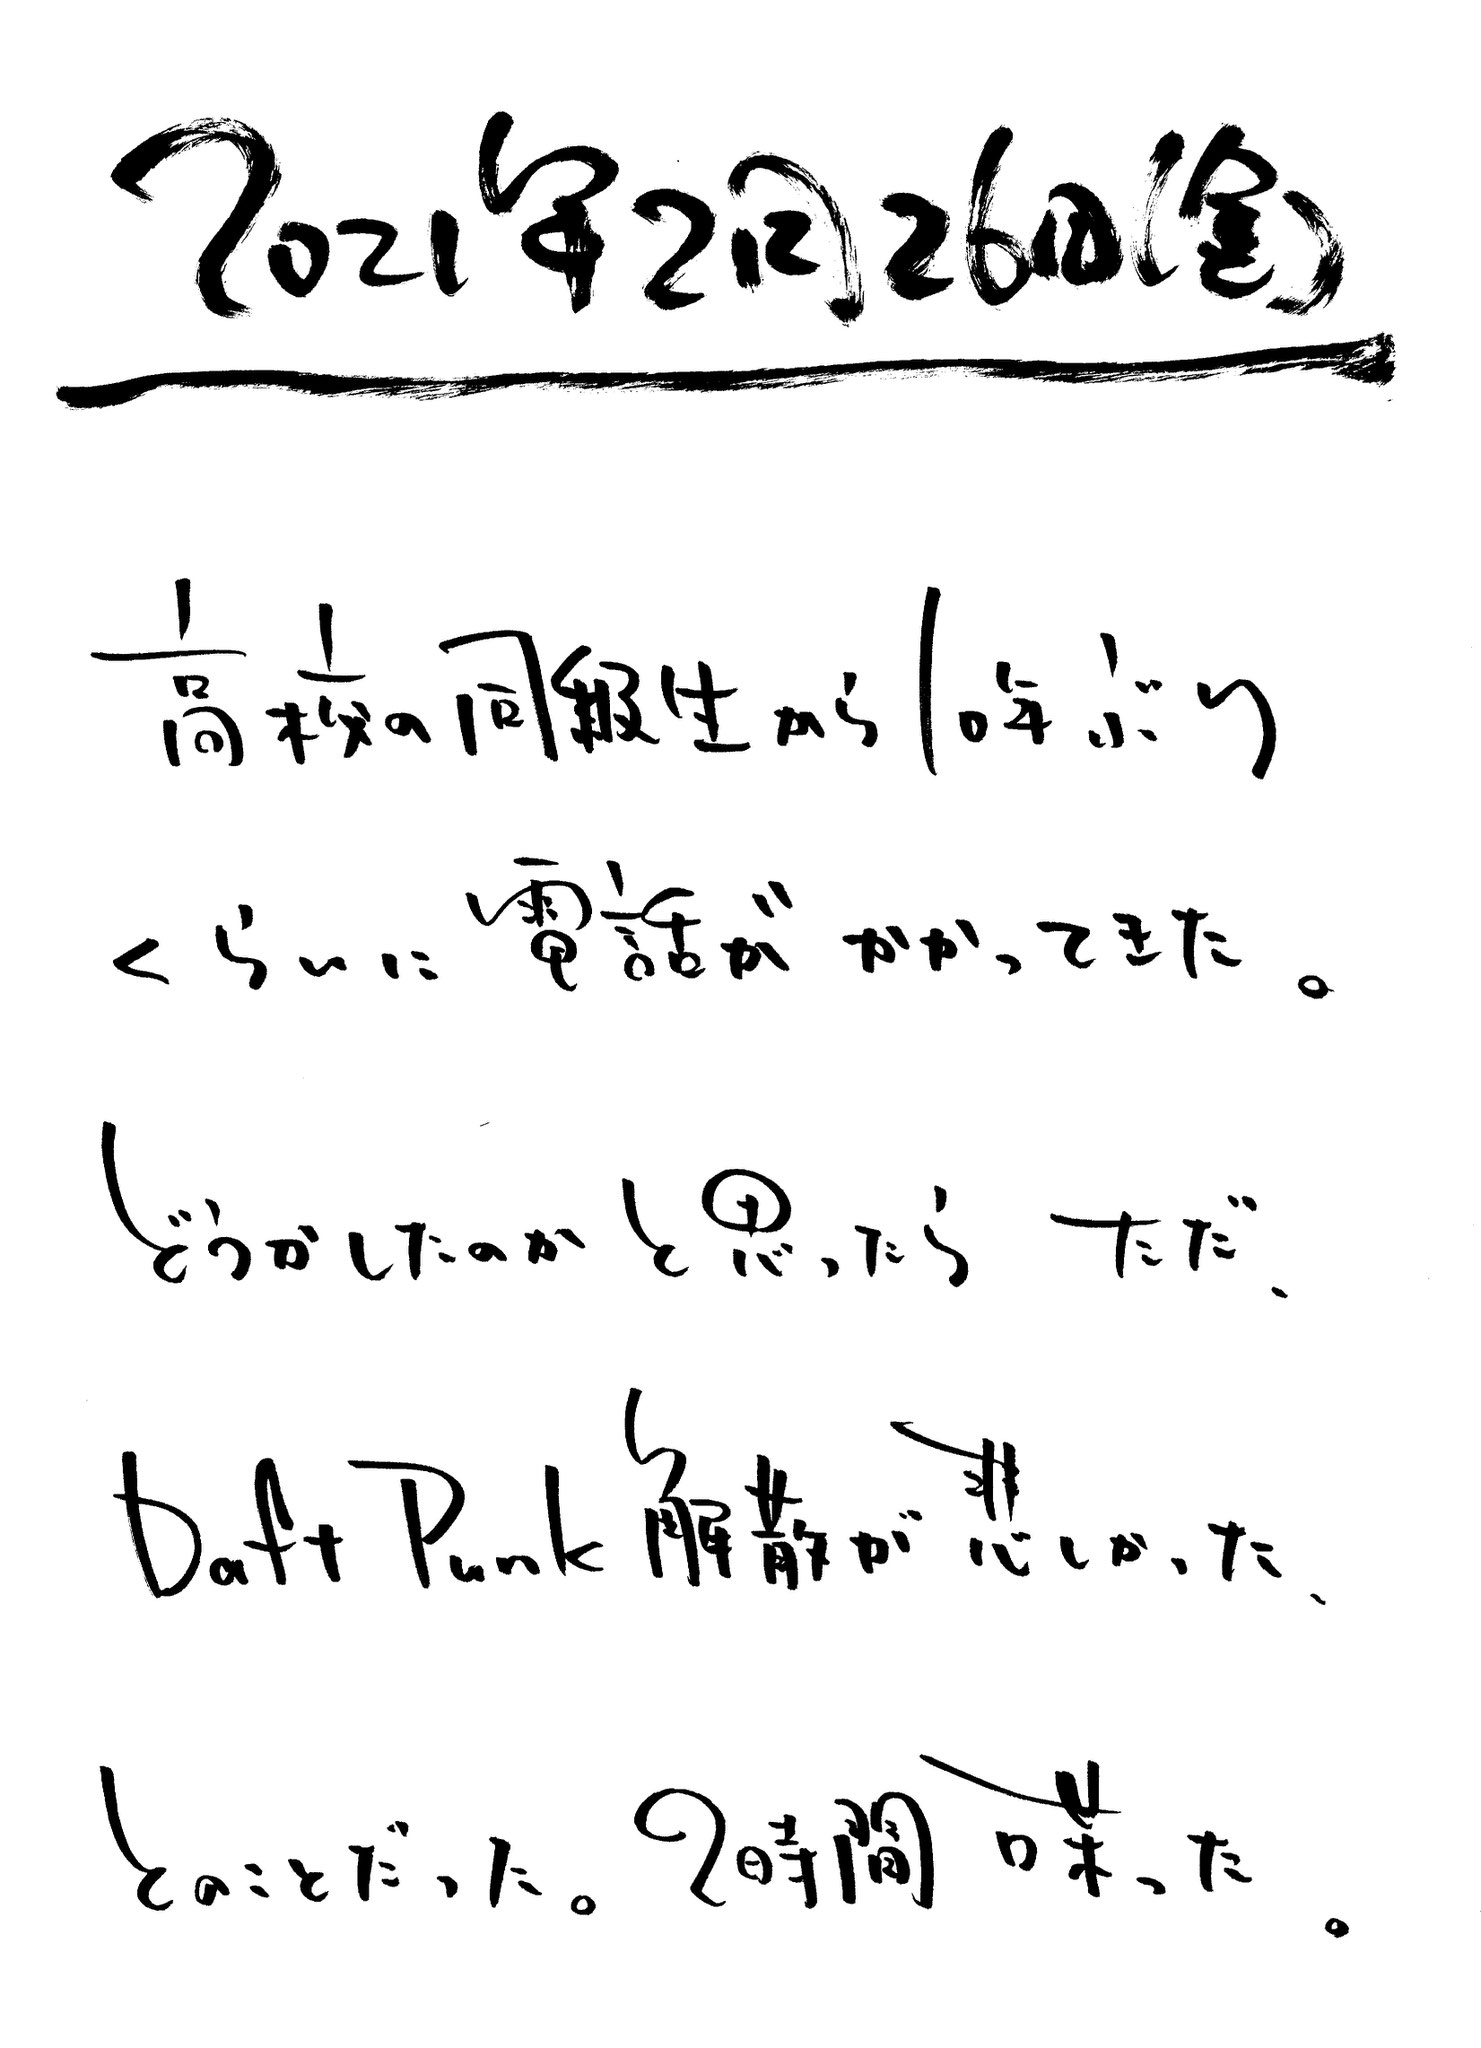 2021年2月26日(金)
高校の同級生から10年ぶり
くらいに電話がかかってきた。
どうかしたのかと思ったら ただ、
Daft Punk 解散が悲しかった、
とのことだった。2時間喋った。